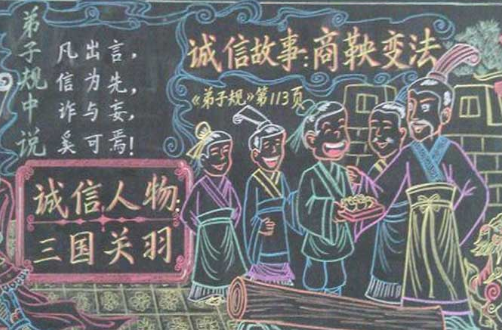 弟子规中说
凡出言，
信为先，
诈与妄，
奚可焉！
诚信故事：商鞅变法
《弟子规》第113页
诚信人物：
三国关羽